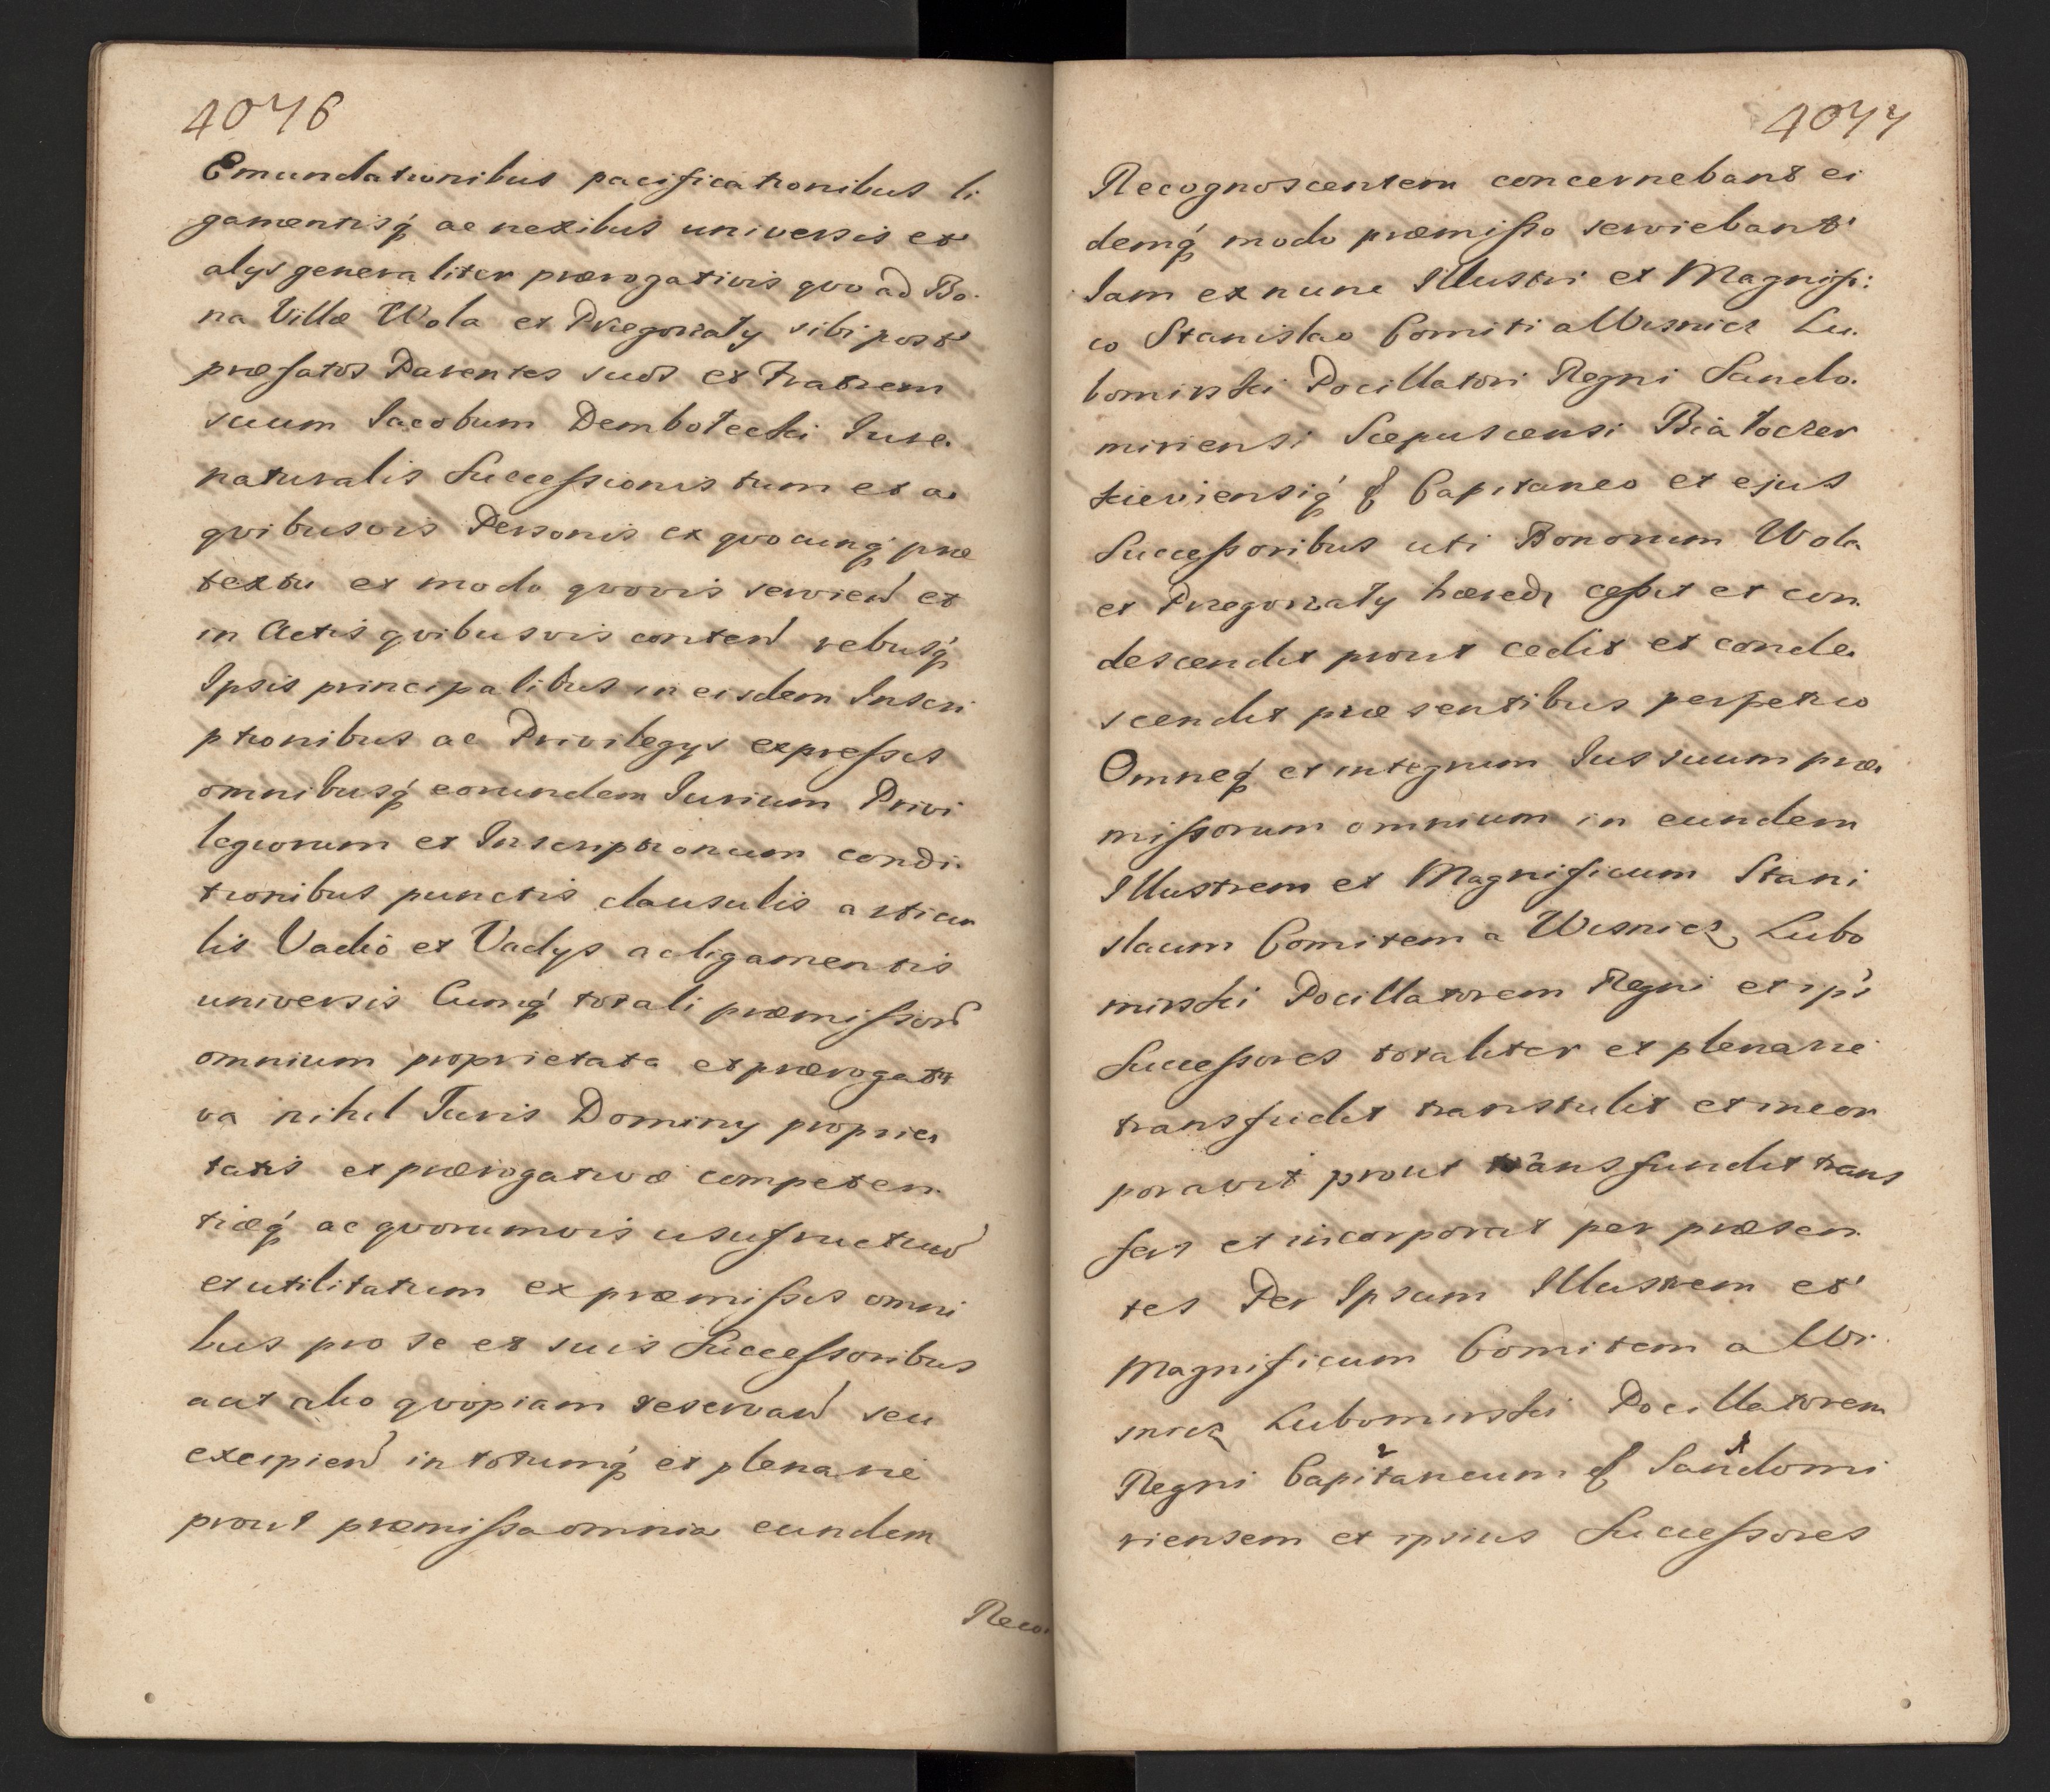 4076
Emundationibus pacificationibus li
gamentisq́ ac nexibus universis et
alys generaliter prærogativis quo ad Bo
na Villæ Wola et Przegorzaly sibi post
præfatos Parentes suos et Fratrem
suum Iacobum Dembołecki Iure
naturalis Successionis tum et a
quibusvis Personis ex quocunq́ præ
textu et modo quovis servien et
in Actis quibusvis conten rebusq́
Ipsis principalibus in eisdem Inscri
ptionibus ac Privilegys expressis
omnibusq́ eorundem Iurium Privi
legiorum et Inscriptionum condi
tionibus punctis clausulis articu
lis Vadio et Vadys ac ligamentis
universis Cumq́ totali præmissor
omnium proprietate et prærogati
va nihil Iuris Dominy proprie
tatis et prærogativæ competen
tiæq́ ac quorumvis usufructuu
et utilitatum ex præmissis omni
bus pro se et suis Successoribus
aut alio quopiam reservan seu
excipien in totumq́ et plenarie
prout præmissa omnia eundem
Reco
4077
Recognoscentem concernebant ei
demq́ modo præmisso serviebant
Iam ex nunc Illustri et Magnifi:
co Stanislao Comiti a Wisnicz Lu
bomirski Pocillatori Regni Sando
miriensi Scepuscensi Białocer
kieviensiq́ & Capitaneo et ejus
Successoribus uti Bonorum Wola
et Przegorzaly hæredi cessit et con
descendit prout cedit et conde
scendit præsentibus perpetuo
Omneq́ et integrum Ius suum præ
missorum omnium in eundem
Illustrem et Magnificum Stani
slaum Comitem a Wisnicz Lubo
mirski Pocillatorem Regni et ips
Successores totaliter et plenarie
transfudit transtulit et incor
poravit prout transfundit trans
fert et incorporat per præsen
tes Per Ipsum Illustrem et
Magnificum Comitem a Wi
snicz Lubomirski Pocillatorem
Regni Capitaneum & Sandomi
riensem et ipsius Successores